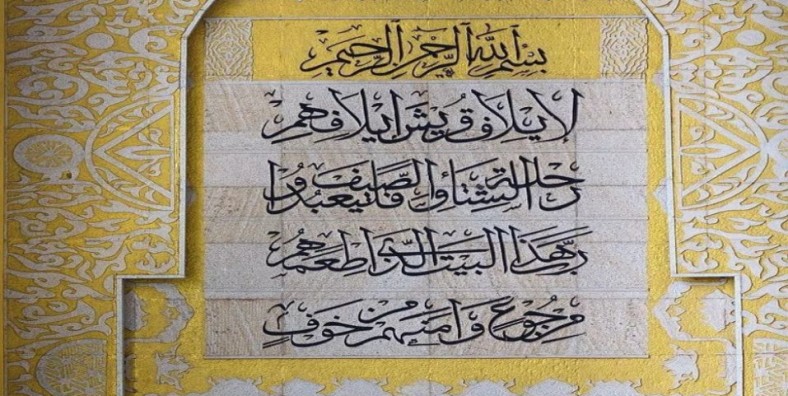 بسم الله الرحمن الرحيم
لإيلاف قريش إيلافهم
رحلة الشتاء والصيف فليعبدوا
رب هذا البيت الذي أطعمهم
من جوع وآمنهم من خوف